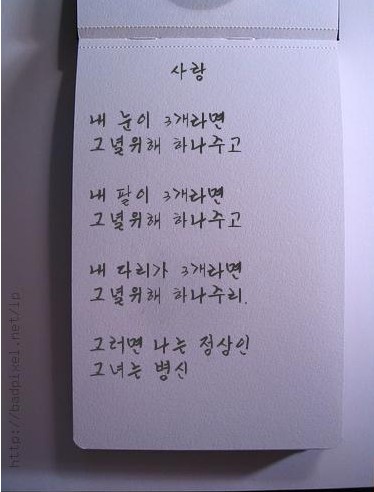 사랑
내 눈이 3개라면
그녈위해 하나주고
내 팔이 3개라면
그녈위해 하나주고
내 다리가 3개라면
그녈위해 하나주리.
그러면 나는 정상인
그녀는 병신
http://badpixel.net/ip